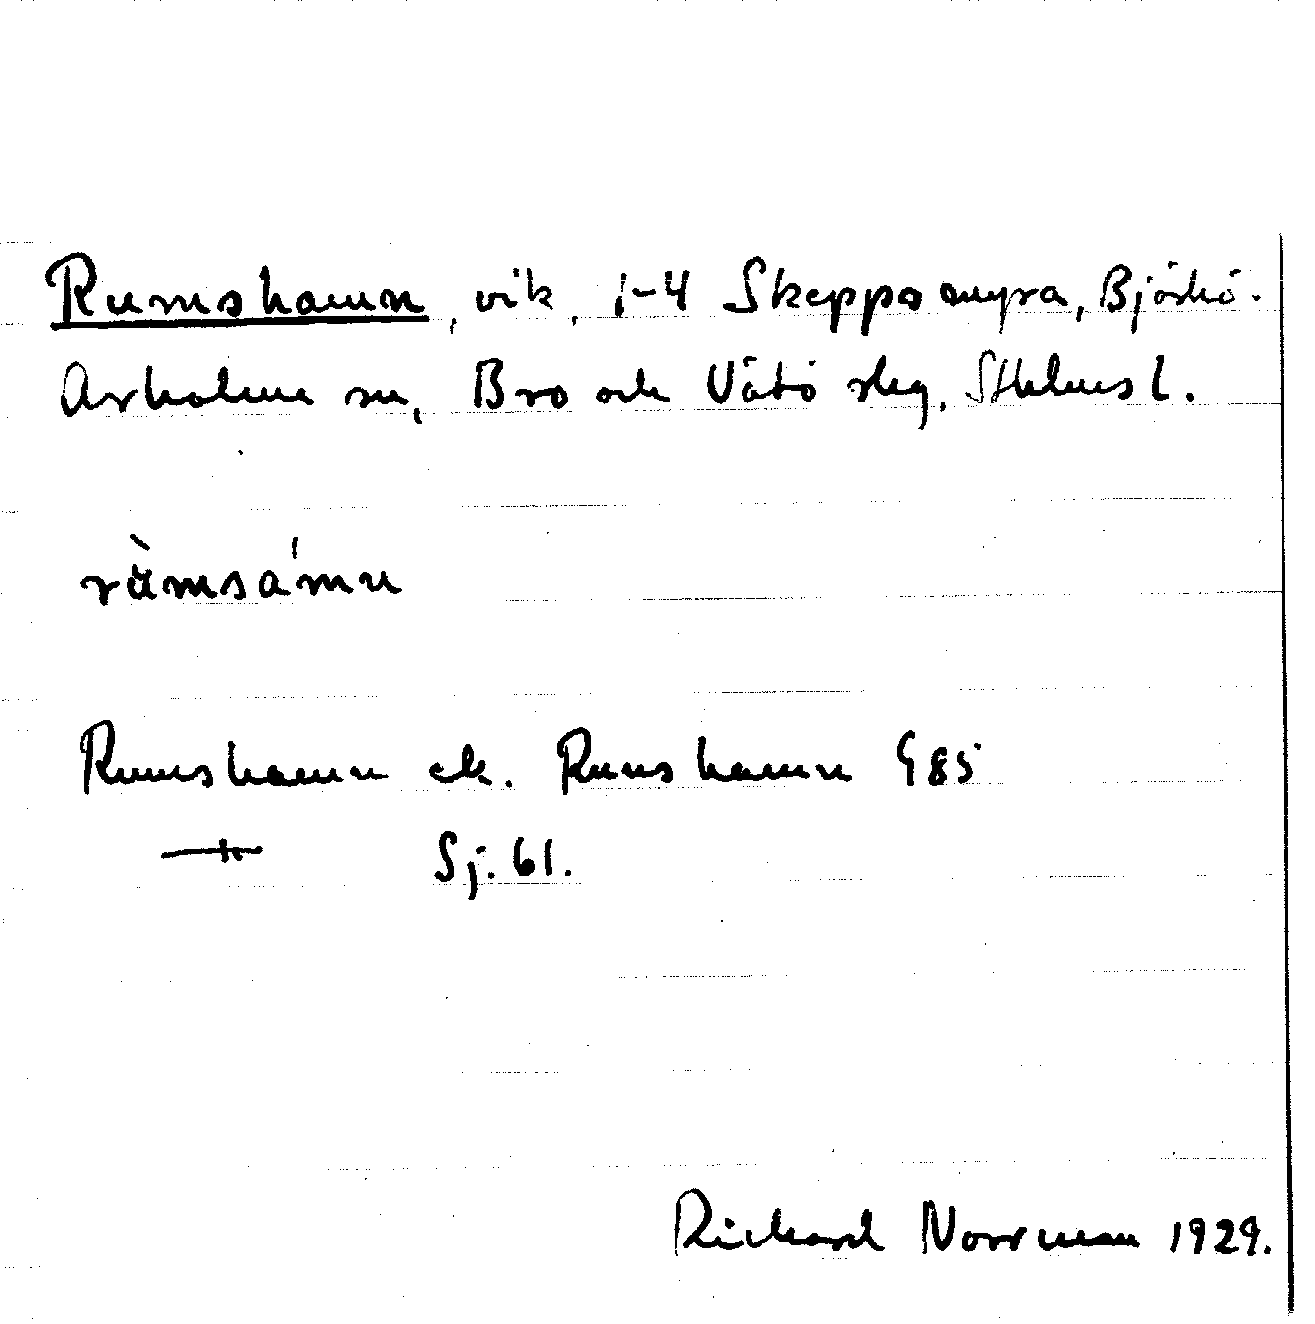 Rumshamn, vik, 1-4 Skeppsmyra, Björkö-
Arholma sn, Bro och Vätö skg, Sthlms l.
ràmsámn
Rumshamn ek. Runshamn G85
Sj. 61.
Richard Norrman 1929.